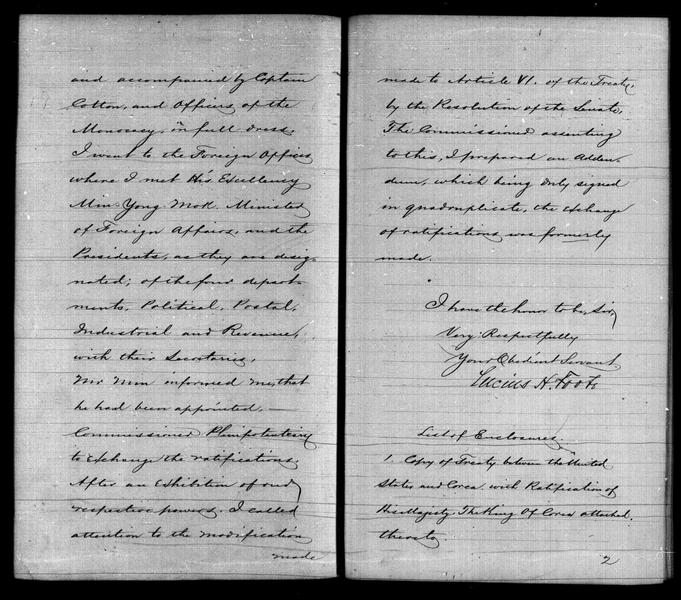 and accompanied by Captain
Cotton, and Officers of the
Monocacy, in full dress,
I went to the Foreign Office,
where I met His Excellency
Min Yong Mok, Minister
of Foreign Affairs, and the
Presidents, as they are desig-
nated; of the four depart-
ments, Political, Postal,
Industrial and Revenue,
with their Secretaries.
Mr Min informed me, that
he had been appointed. —
Commissioner Plenipotentiary
to Exchange the ratifications.
After an Exhibition of our
respective powers, I called
attention to the modification
made
made to Article VI. of the Treaty,
by the Resolution of the Senate,
The Commissioner assenting
to this, I prepared an Adden-
dum, which being duly signed
in quadruplicate, the exchange
of ratifications was formerly
made.
I have the honor to be, Sir,
Very Respectfully
Your Obedient Servant
Lucius H. Foote
List of Enclosures.
1. Copy of Treaty between the United
States and Corea with Ratification of
His Majesty The King Of Corea attached
thereto
2